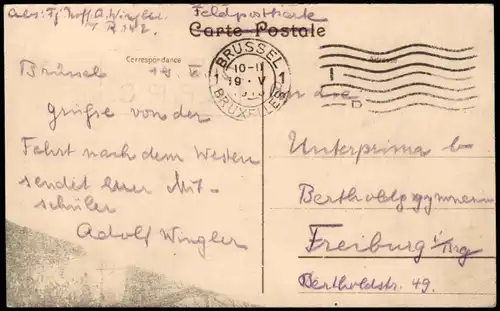 Feldpostkarte
Abs: Fj. Hoff. A. Wingler
R. 142.
Carte Postale
Correspondance
Adresse
BRUSSEL
1 10-11 1
19 · V
BRUXELLES
Brüssel
Grüße von der
Fahrt nach dem Westen
sendet Euer Mit-
schüler
Adolf Wingler
An die
Unterprima b
Bertholdgymnasium
Freiburg i/Brg
Bertholdstr. 49.